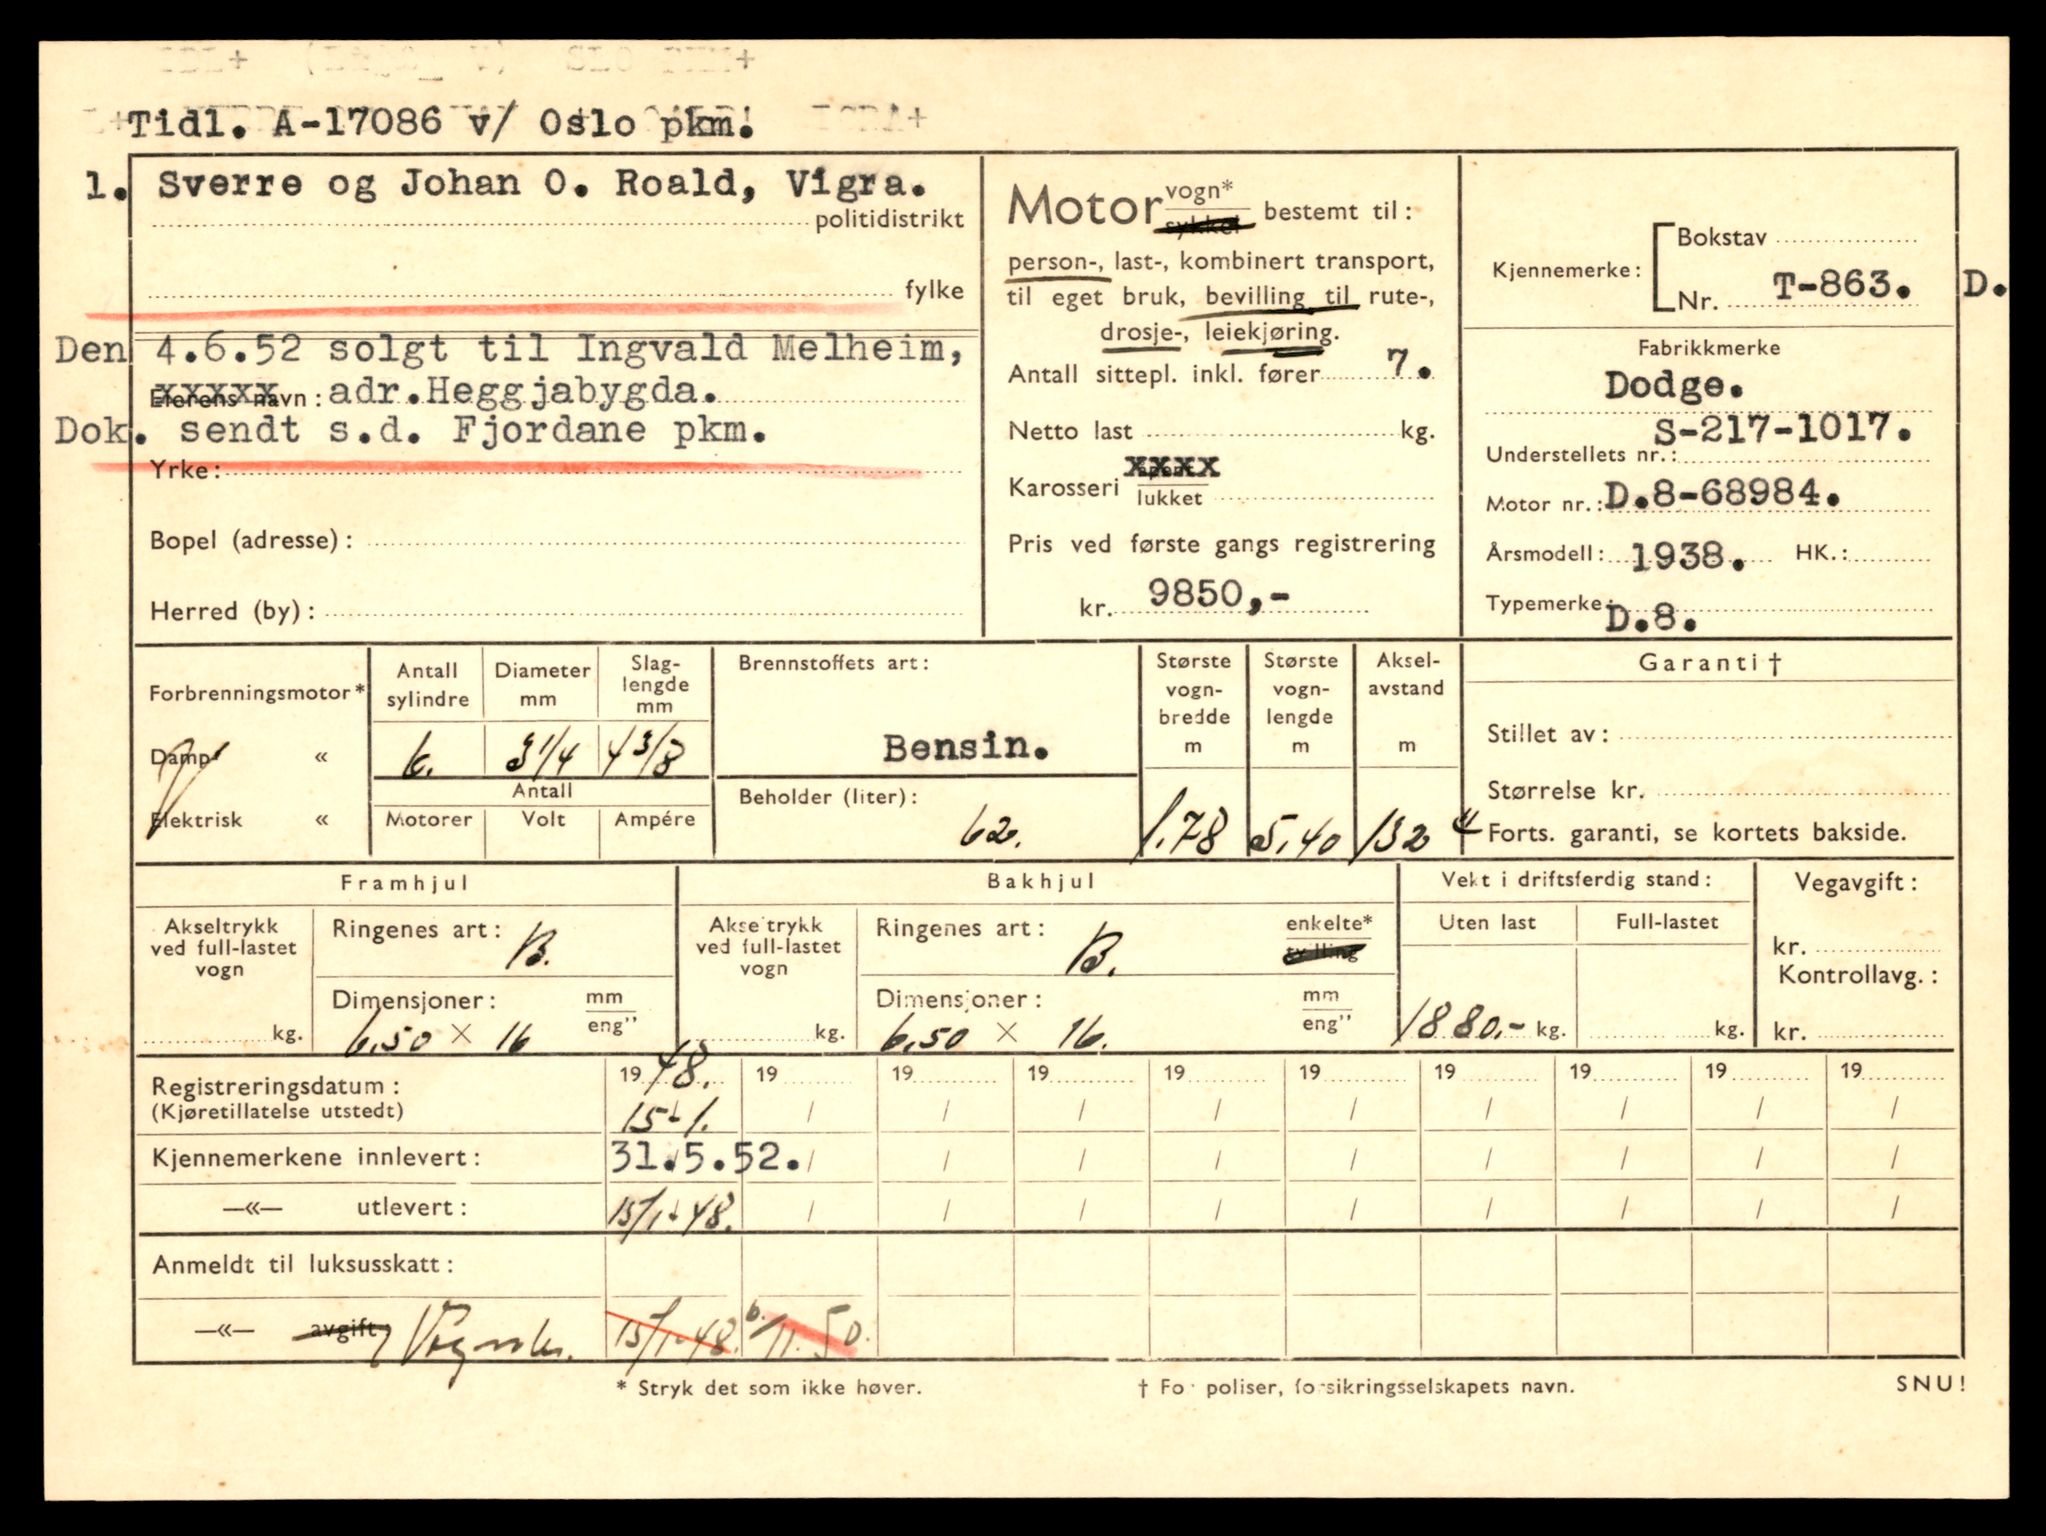 Tidl. A-17086 v/ Oslo pkm.
1. Sverre og Johan O. Roald, Vigra.
politidistrikt
fylke
Den 4.6.52 solgt til Ingvald Melheim,
Eierens navn: adr. Heggjabygda.
Dok. sendt s.d. Fjordane pkm.
Yrke:
Bopel (adresse):
Herred (by):
Motor vogn*
sykkel bestemt til:
person-, last-, kombinert transport,
til eget bruk, bevilling til rute-,
drosje-, leiekjøring.
Antall sittepl. inkl. fører 7.
Netto last kg.
Karosseri xxxx
lukket
Pris ved første gangs registrering
kr. 9850,-
Kjennemerke: Bokstav
Nr. T-863. D.
Fabrikkmerke
Dodge.
S-217-1017.
Understellets nr.:
Motor nr.: D.8-68984.
Årsmodell: 1938. HK.:
Typemerke: D.8.
Forbrenningsmotor*
Damp «
Elektrisk «
Antall sylindre
Diameter mm
Slag-lengde mm
6. 3 1/4 4 3/8
Antall
Motorer Volt Ampére
Brennstoffets art:
Bensin.
Beholder (liter):
62.
Største vogn-bredde m
1.78
Største vogn-lengde m
5,40
Aksel-avstand m
132"
Garanti †
Stillet av:
Størrelse kr.
Forts. garanti, se kortets bakside.
Framhjul
Akseltrykk ved full-lastet vogn
kg.
Ringenes art: B.
Dimensjoner: mm
eng"
6,50 × 16
Bakhjul
Akseltrykk ved full-lastet vogn
kg.
Ringenes art: B. enkelte*
tvilling
Dimensjoner: mm
eng"
6,50 × 16.
Vekt i driftsferdig stand:
Uten last Full-lastet
1880.- kg. kg.
Vegavgift:
kr.
Kontrollavg.:
kr.
Registreringsdatum: 1948. 19 19 19 19 19 19 19 19 19
(Kjøretillatelse utstedt) 15-1. / / / / / / / / /
Kjennemerkene innlevert: 31.5.52. / / / / / / / / /
—«— utlevert: 15/1-48. / / / / / / / / /
Anmeldt til luksusskatt:
—«— avgift: 15/1-48. 6./11.50.
* Stryk det som ikke høver.
† For poliser, forsikringsselskapets navn.
SNU!